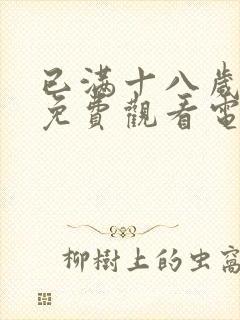 已滿十八歲
免費觀看電
柳樹上的虫窩